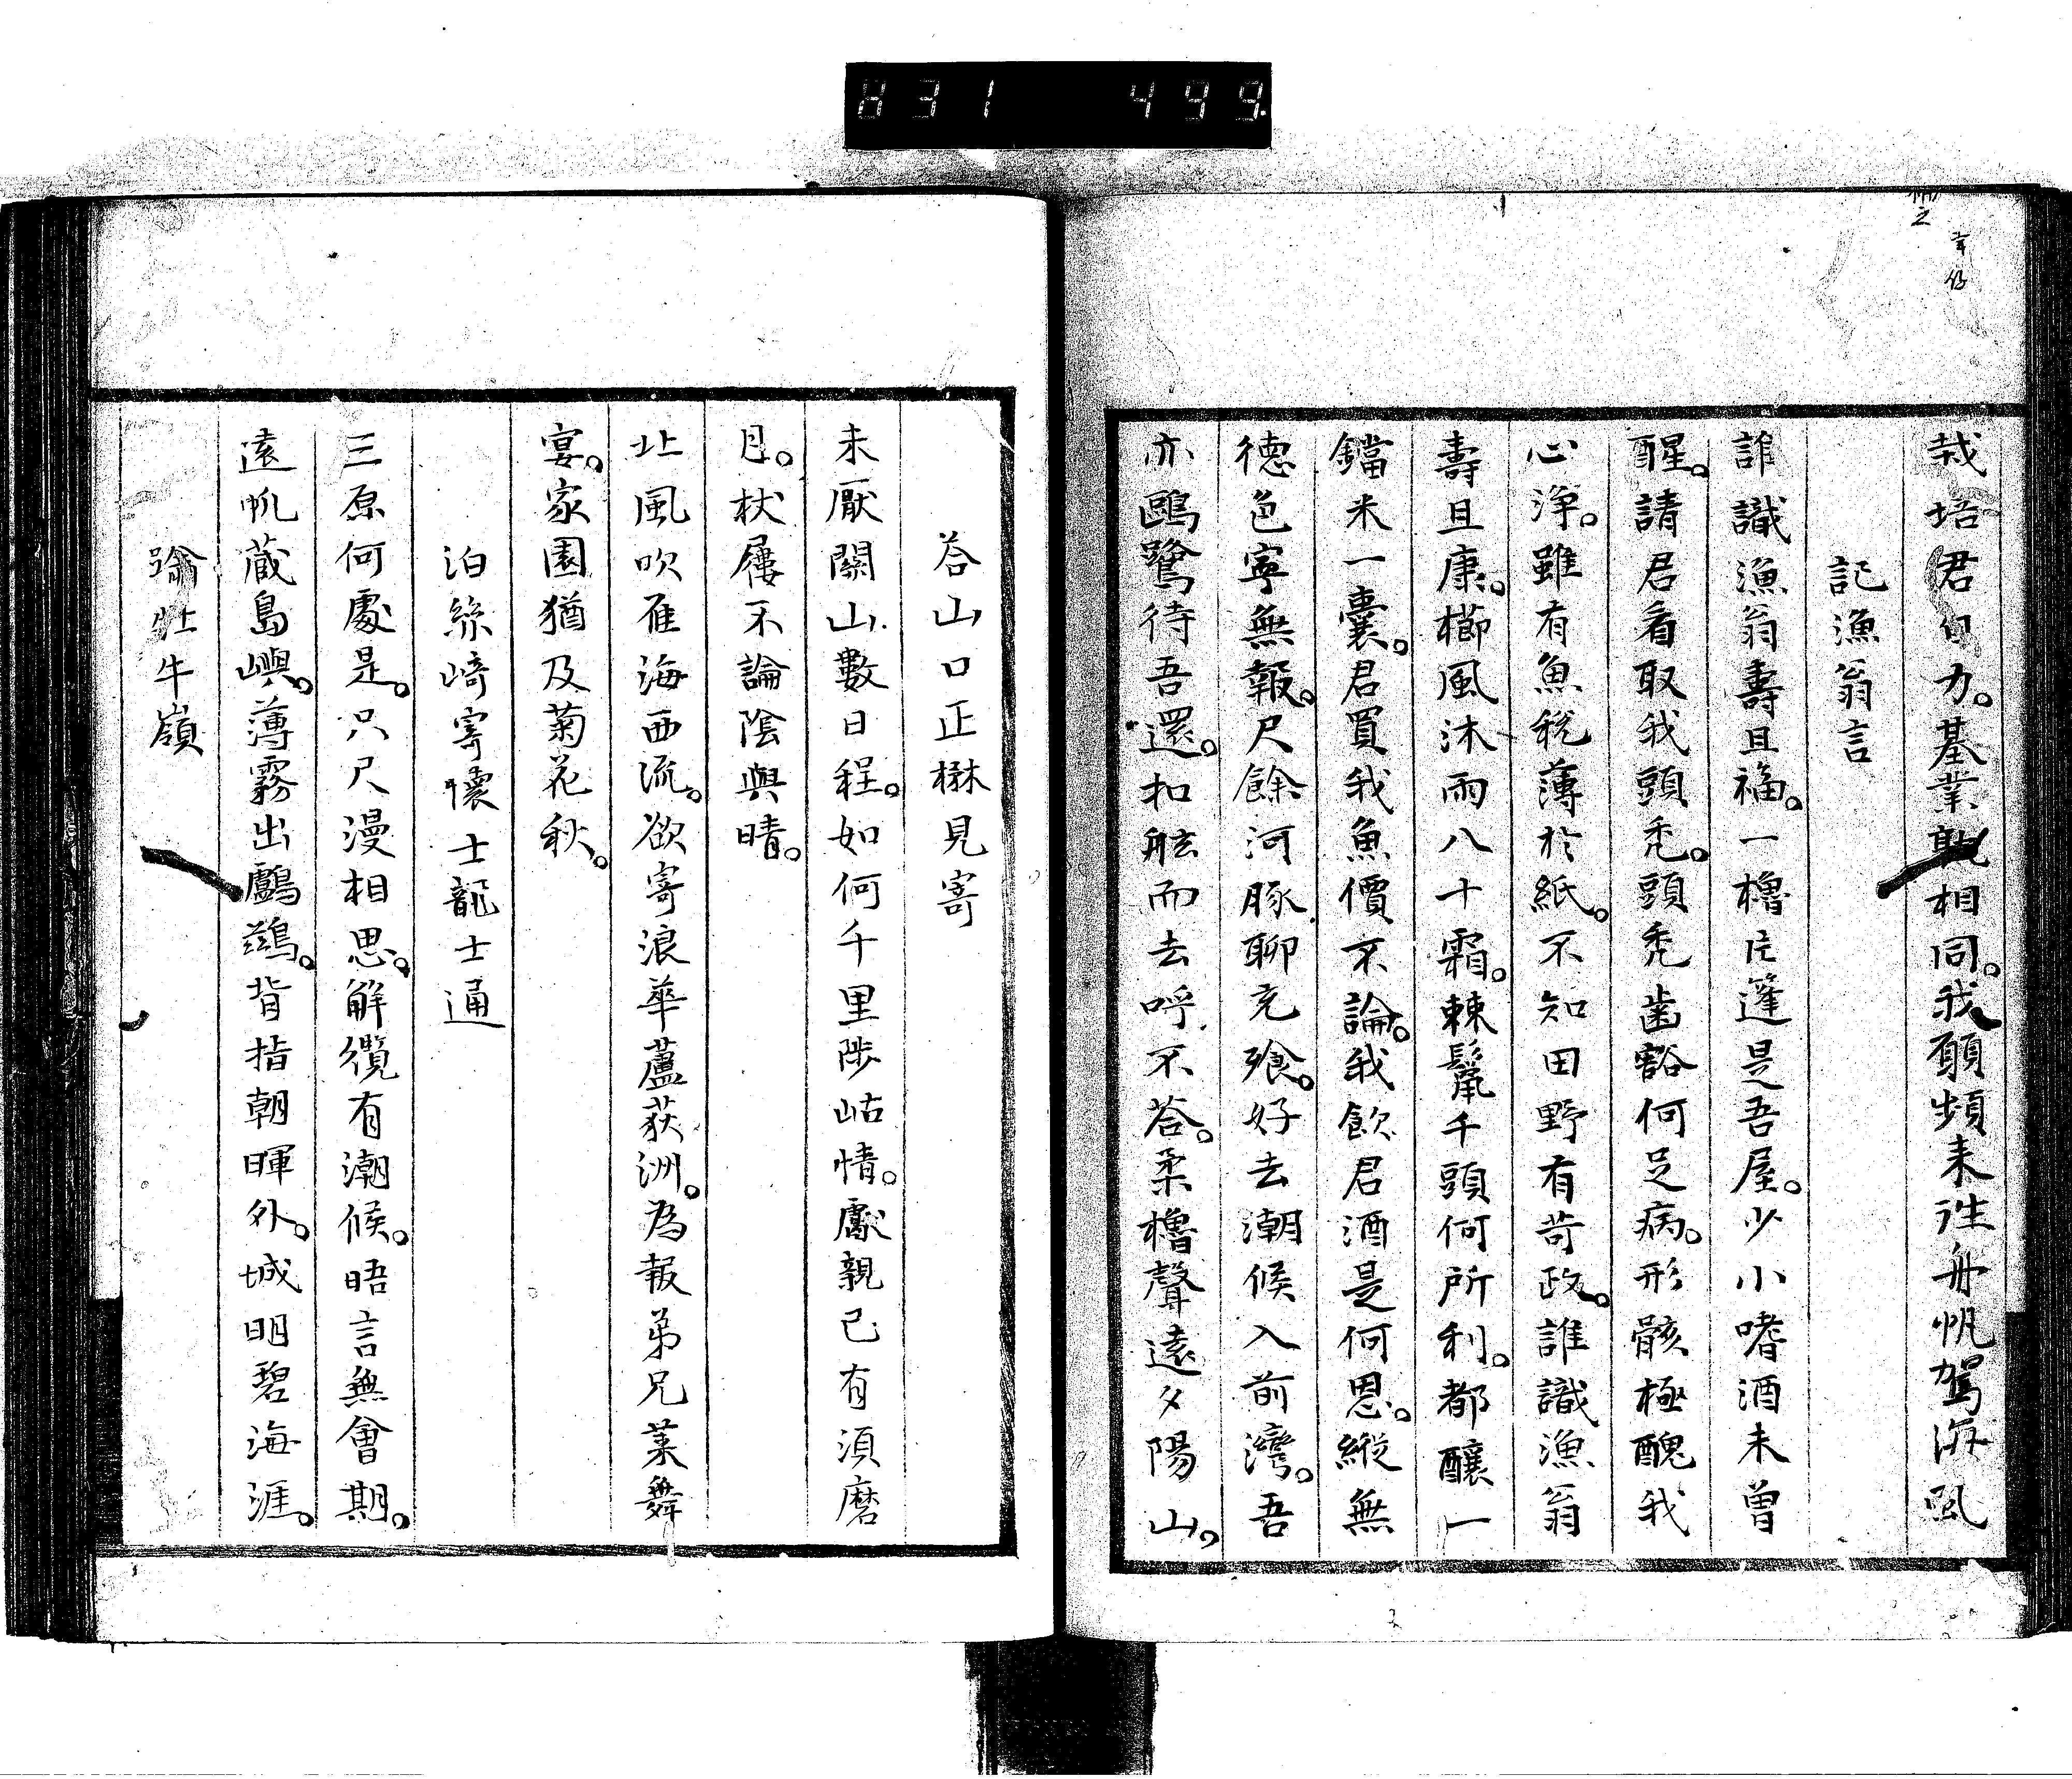 831 499
栽培君自力。基業孰相同。我願頻来往舟帆駕海風
記漁翁言
誰識漁翁壽且福。一櫓片篷是吾屋。少小嗜酒未曽
醒。請君看取我頭禿。頭禿歯豁何足病。形骸極醜我
心浄。雖有魚税薄於紙。不知田野有苛政。誰識漁翁
壽且康。櫛風沐雨八十霜。棘鬣千頭何所利。都釀一
鐺米一嚢。君買我魚價不論。我飲君酒是何恩。縦無
徳色寧無報。尺餘河豚聊充飧。好去潮候入前灣。吾
亦鷗鷺待吾還。扣舷而去呼不荅。柔櫓聲遠夕陽山。
荅山口正楙見寄
未厭關山數日程。如何千里陟岵情。慮親已有湏磨
目。杖屨不論陰與晴。
北風吹雁海西流。欲寄浪華蘆荻洲。為報弟兄菜舞
宴。家園猶及菊花秋。
泊絲﨑寄懐士龍士通
三原何處是。只尺漫相思。解纜有潮候。晤言無會期。
遠帆蔵島嶼。薄霧出鸕鷀。背指朝暉外。城明碧海涯。
踰牡牛嶺